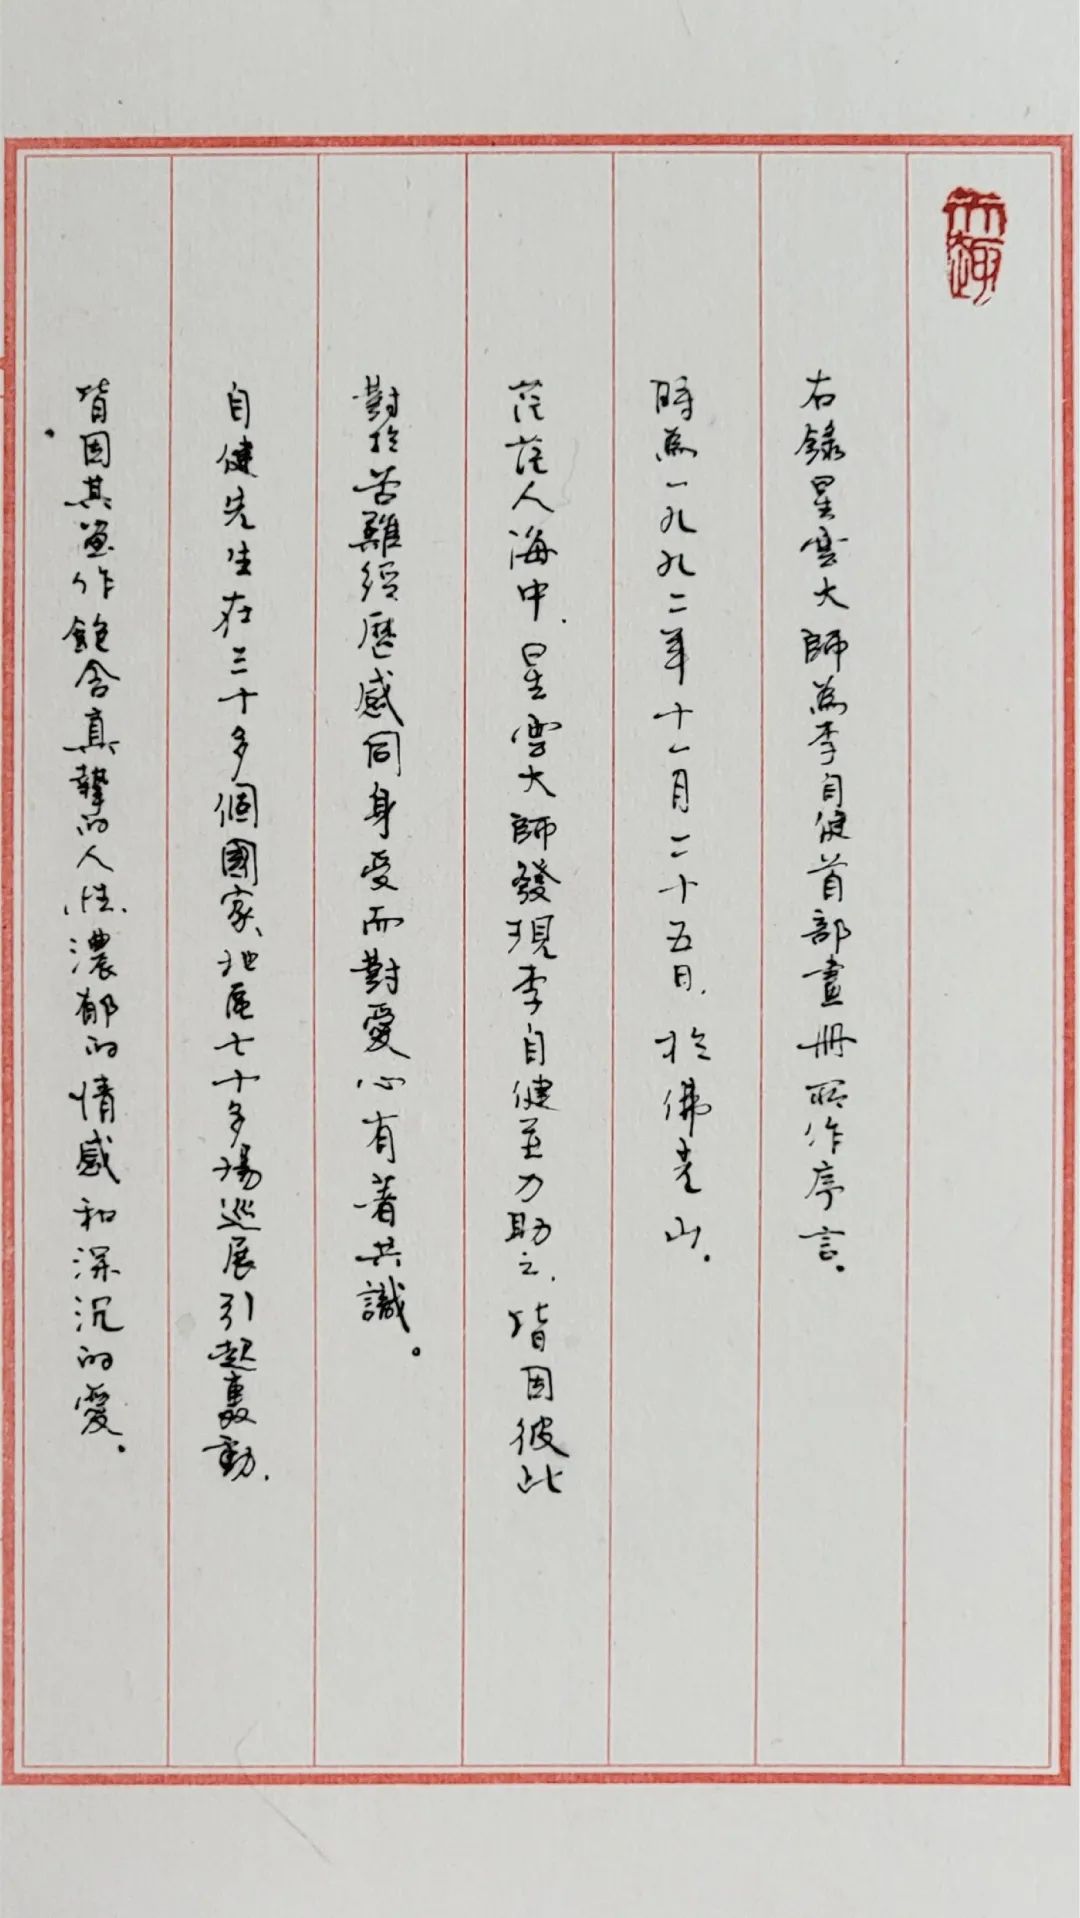 右錄星雲大師為李自健首部畫冊所作序言。
時為一九九二年十一月二十五日，於佛光山。
茫茫人海中，星雲大師發現李自健並力助之，皆因彼此
對於苦難經歷感同身受而對愛心有著共識。
自健先生在三十多個國家、地區七十多場巡展引起轟動，
皆因其畫作飽含真摯的人性、濃郁的情感和深沉的愛。